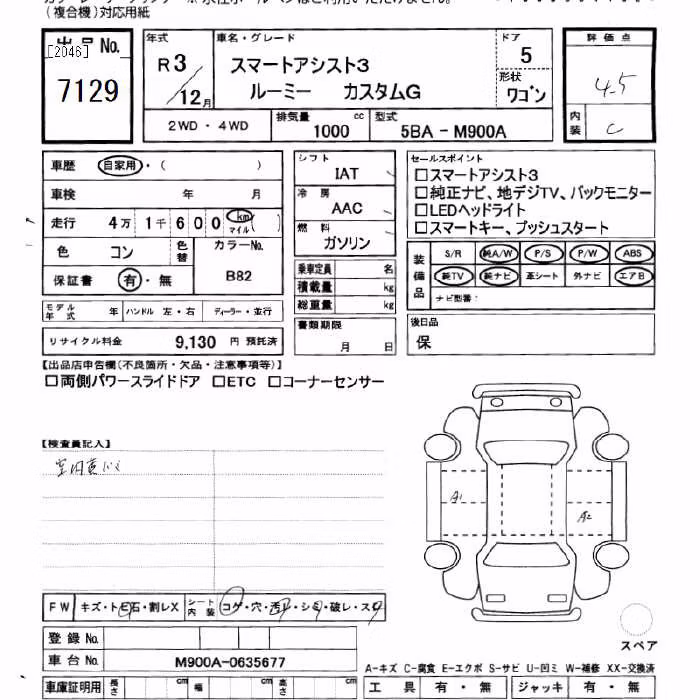 (複合機)対応用紙
出品No.
[2046]
7129
年式
R3/12月
車名・グレード
スマートアシスト3
ルーミー カスタムG
ドア
5
形状
ワゴン
評価点
4.5
内装
C
2WD・4WD
排気量
1000 cc
型式
5BA-M900A
車歴 自家用・( )
車検 年 月
走行 4万 1千 600 km マイル ( )
色 コン
色替
カラーNo.
B82
保証書 有・無
モデル年式 年 ハンドル 左・右 ディーラー・並行
リサイクル料金 9,130 円 預託済
シフト
IAT
冷房
AAC
燃料
ガソリン
乗車定員 名
積載量 kg
総重量 kg
書類期限
月 日
セールスポイント
□スマートアシスト3
□純正ナビ、地デジTV、バックモニター
□LEDヘッドライト
□スマートキー、プッシュスタート
装備品
S/R 純A/W P/S P/W ABS
純TV 純ナビ 革シート 外ナビ エアB
ナビ型番:
後日品
保
【出品店申告欄(不良箇所・欠品・注意事項等)】
□両側パワースライドドア □ETC □コーナーセンサー
【検査員記入】
A1
A2
FW キズ・トビ石・割レX
シート内装 コゲ・穴・汚レ・シミ・破レ・スレ
登録No.
車台No. M900A-0635677
車庫証明用 長さ cm 幅 cm 高さ cm
スペア
A-キズ C-腐食 E-エクボ S-サビ U-凹ミ W-補修 XX-交換済
工具 有・無 ジャッキ 有・無